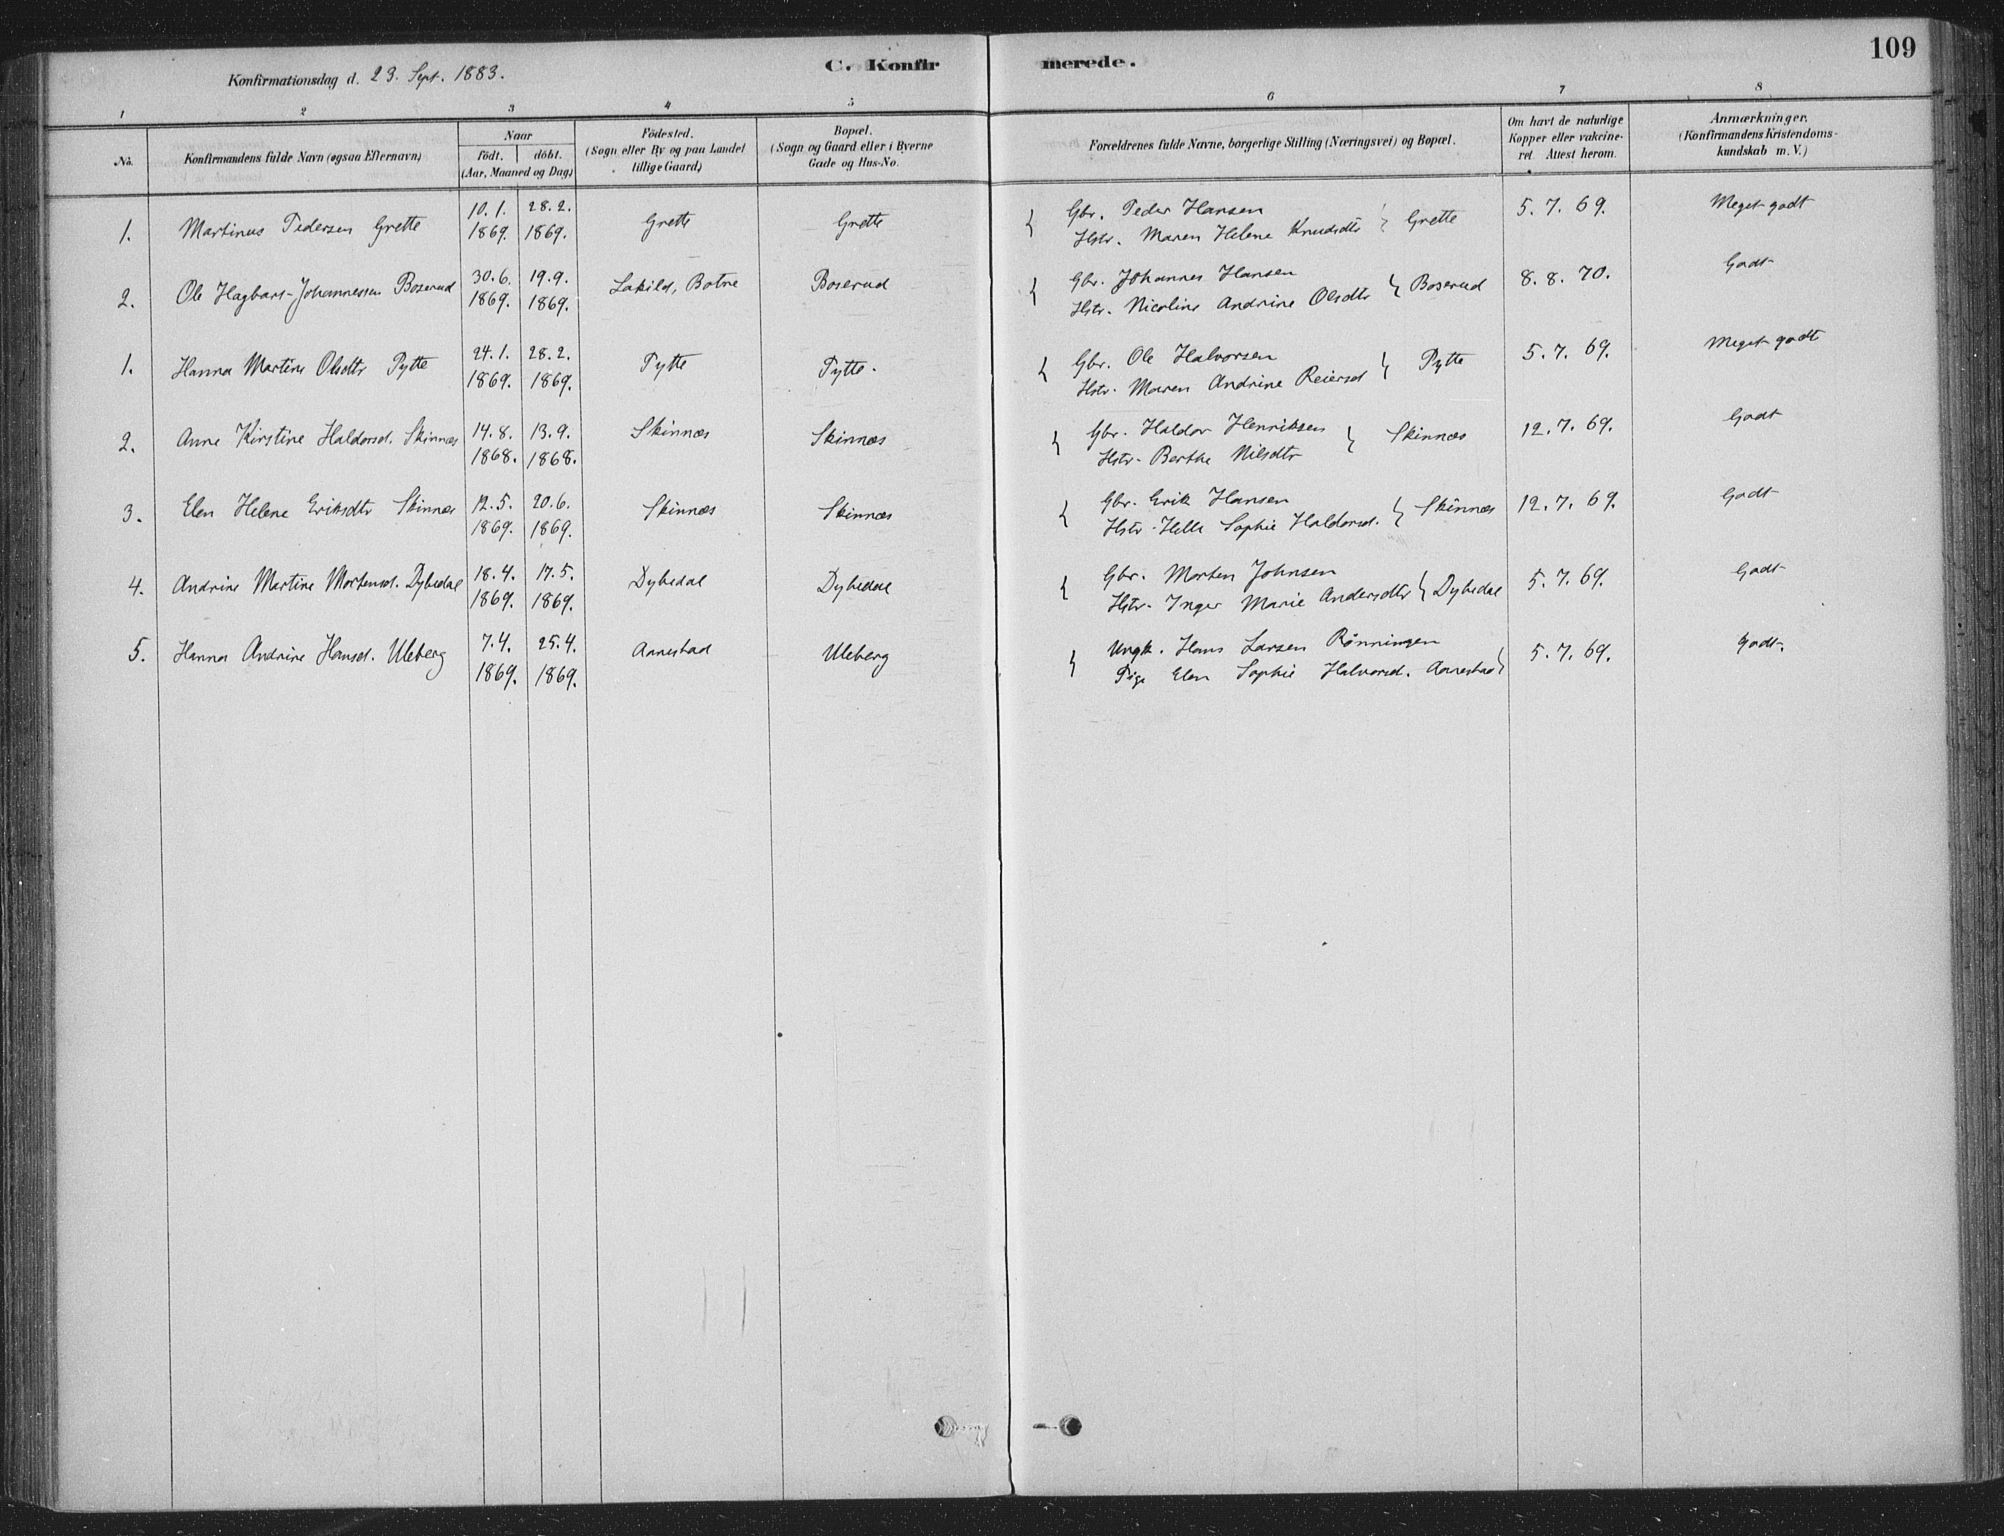 109
Konfirmationsdag d. 23. Sept. 1883.
C. Konfirmerede.
1 2 3 4 5 6 7 8
No. Konfirmandens fulde Navn (ogsaa Efternavn) Naar födt. döbt. (Aar, Maaned og Dag) Födested. (Sogn eller By og paa Landet tillige Gaard) Bopæl. (Sogn og Gaard eller i Byerne Gade og Hus-No. Forældrenes fulde Navne, borgerlige Stilling (Næringsvei) og Bopæl. Om havt de naturlige Kopper eller vakcineret. Attest herom. Anmærkninger. (Konfirmandens Kristendomskundskab m. V.)
1. Martinus Pedersen Grette 10.1. 1869. 28.2. 1869. Grette Grette { Gbr. Peder Hansen
Hstr. Maren Helene Knudsdtr } Grette 5.7.69. Meget godt
2. Ole Hagbart Johannessen Boserud 30.6. 1869. 19.9. 1869. Lakild, Botne Boserud { Gbr. Johannes Hansen
Hstr. Nicoline Andrine Olsdtr } Boserud 8.8.70. Godt
1. Hanna Martine Olsdtr Pytte 24.1. 1869. 28.2. 1869. Pytte Pytte. { Gbr. Ole Halvorsen
Hstr. Maren Andrine Reiersd } Pytte 5.7.69. Meget godt
2. Anne Kirstine Haldorsd. Skinnæs 14.8. 1868. 13.9. 1868. Skinnæs Skinnæs { Gbr. Haldor Henriksen
Hstr. Berthe Nilsdtr } Skinnæs 12.7.69. Godt
3. Elen Helene Eriksdtr Skinnæs 12.5. 1869. 20.6. 1869. Skinnæs Skinnæs { Gbr. Erik Hansen
Hstr. Helle Sophie Haldorsd. } Skinnæs 12.7.69. Godt
4. Andrine Martine Mortensd. Dybedal 18.4. 1869. 17.5. 1869. Dybedal Dybedal { Gbr. Morten Johnsen
Hstr. Inger Marie Andersdtr } Dybedal 5.7.69. Godt
5. Hanna Andrine Hansd. Uleberg 7.4. 1869. 25.4. 1869. Aanestad Uleberg { Ungk. Hans Larsen Rönningen
Pige Elen Sophie Halvorsd. Aanestad } 5.7.69. Godt.